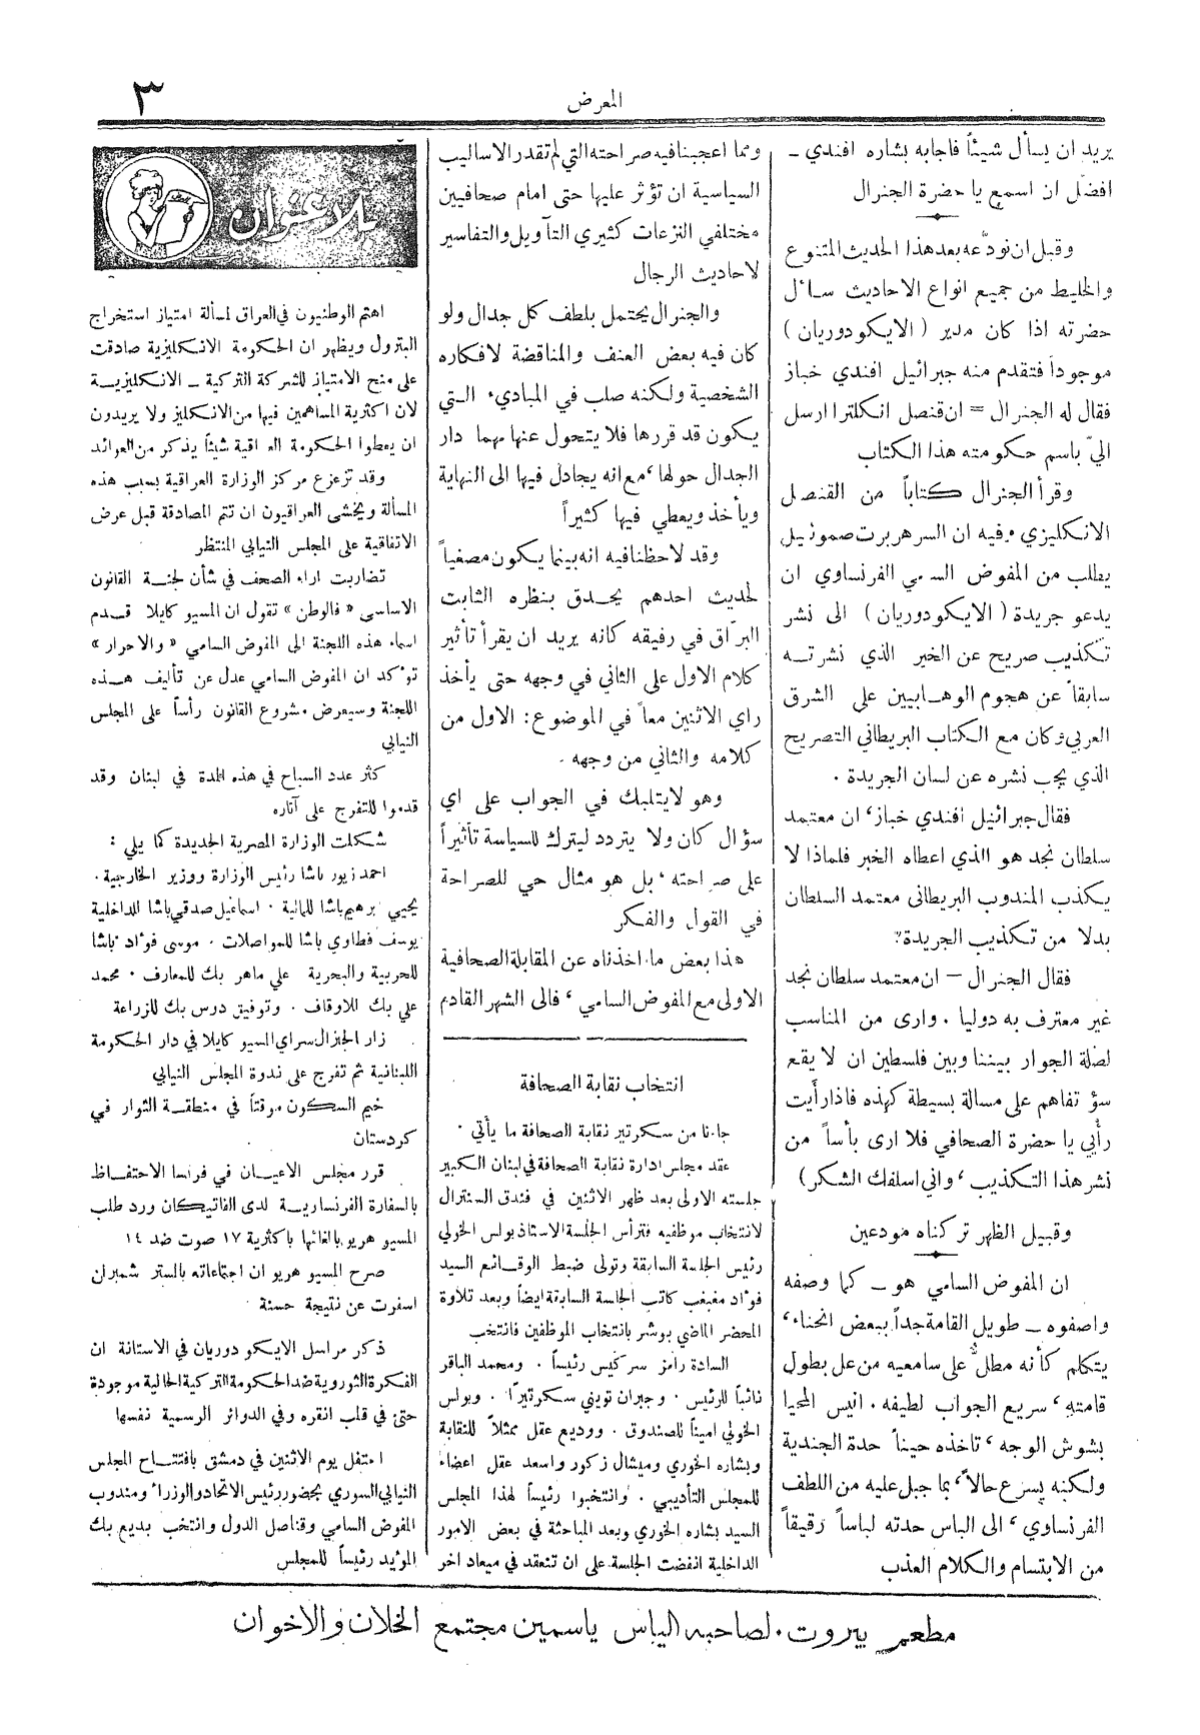 المعرض
٣
يريد ان يسأل شيئاً فاجابه بشاره افندي ـ
افضّل ان اسمع يا حضرة الجنرال
وقبل ان نودّعه بعد هذا الحديث المتنوع
والخليط من جميع انواع الاحاديث سأل
حضرته اذا كان مدير ( الايكو دوريان )
موجوداً فتقدم منه جبرائيل افندي خباز
فقال له الجنرال = ان قنصل انكلترا ارسل
اليّ باسم حكومته هذا الكتاب
وقرأ الجنرال كتاباً من القنصل
الانكليزي وفيه ان السر هربرت صموئيل
يطلب من المفوض السامي الفرنساوي ان
يدعو جريدة ( الايكو دوريان ) الى نشر
تكذيب صريح عن الخبر الذي نشرته
سابقاً عن هجوم الوهابيين على الشرق
العربي وكان مع الكتاب البريطاني التصريح
الذي يجب نشره عن لسان الجريدة .
فقال جبرائيل افندي خباز، ان معتمد
سلطان نجد هو الذي اعطاه الخبر فلماذا لا
يكذب المندوب البريطاني معتمد السلطان
بدلا من تكذيب الجريدة؟
فقال الجنرال – ان معتمد سلطان نجد
غير معترف به دوليا . وارى من المناسب
لصلة الجوار بيننا وبين فلسطين ان لا يقع
سؤ تفاهم على مسالة بسيطة كهذه فاذا رأيت
رأيي يا حضرة الصحافي فلا ارى بأساً من
نشر هذا التكذيب ، واني اسلفك الشكر)
وقبيل الظهر تركناه مودعين
ان المفوض السامي هو ـ كما وصفه
واصفوه ـ طويل القامة جداً ببعض انحناء،
يتكلم كأنه مطلٌّ على سامعيه من عل بطول
قامته ، سريع الجواب لطيفه . انيس المحيا
بشوش الوجه ، تاخذه حيناً حدة الجندية
ولكنه يسرع حالاً ، بما جبل عليه من اللطف
الفرنساوي ، الى الباس حدته لباساً رقيقاً
من الابتسام والكلام العذب
ومما اعجبنا فيه صراحته التي لم تقدر الاساليب
السياسية ان تؤثر عليها حتى امام صحافيين
مختلفي النزعات كثيري التآويل والتفاسير
لاحاديث الرجال
والجنرال يحتمل بلطف كل جدال ولو
كان فيه بعض العنف والمناقضة لافكاره
الشخصية ولكنه صلب في المبادىء التي
يكون قد قررها فلا يتحول عنها مهما دار
الجدال حولها ، مع انه يجادل فيها الى النهاية
ويأخذ ويعطي فيها كثيراً
وقد لاحظنا فيه انه بينما يكون مصغياً
لحديث احدهم يحدق بنظره الثابت
البرّاق في رفيقه كانه يريد ان يقرأ تأثير
كلام الاول على الثاني في وجهه حتى يأخذ
راي الاثنين معاً في الموضوع : الاول من
كلامه والثاني من وجهه .
وهو لا يتلبك في الجواب على اي
سؤال كان ولا يتردد ليترك للسياسة تأثيراً
على صراحته ، بل هو مثال حي للصراحة
في القول والفكر
هذا بعض ما اخذناه عن المقابلة الصحافية
الاولى مع المفوض السامي ، فالى الشهر القادم
انتخاب نقابة الصحافة
جاءنا من سكرتير نقابة الصحافة ما يأتي .
عقد مجلس ادارة نقابة الصحافة في لبنان الكبير
جلسته الاولى بعد ظهر الاثنين في فندق السنترال
لانتخاب موظفيه فترأس الجلسة الاستاذ بولس الخولي
رئيس الجلسة السابقة وتولى ضبط الوقائع السيد
فواد مغبغب كاتب الجلسة السابقة ايضاً وبعد تلاوة
المحضر الماضي بوشر بانتخاب الموظفين فانتخب
السادة رامز سركيس رئيساً . ومحمد الباقر
نائباً للرئيس . وجبران تويني سكرتيراً . وبولس
الخولي اميناً للصندوق . ووديع عقل ممثلاً للنقابة
وبشاره الخوري وميشال زكور واسعد عقل اعضاء
للمجلس التأديبي . وانتخبوا رئيساً لهذا المجلس
السيد بشاره الخوري وبعد المباحثة في بعض الامور
الداخلية انفضت الجلسة على ان تنعقد في ميعاد اخر
بلا عنوان
اهتم الوطنيون في العراق لمسألة امتياز استخراج
البترول ويظهر ان الحكومة الانكليزية صادقت
على منح الامتياز للشركة التركية ـ الانكليزية
لان اكثرية المساهمين فيها من الانكليز ولا يريدون
ان يعطوا الحكومة العراقية شيئاً يذكر من العوائد
وقد تزعزع مركز الوزارة العراقية بسبب هذه
المسألة ويخشى العراقيون ان تتم المصادقة قبل عرض
الاتفاقية على المجلس النيابي المنتظر
تضاربت اراء الصحف في شأن لجنة القانون
الاساسي « فالوطن » تقول ان المسيو كايلا قدم
اسماء هذه اللجنة الى المفوض السامي « والاحرار »
تؤكد ان المفوض السامي عدل عن تأليف هذه
اللجنة وسيعرض مشروع القانون رأساً على المجلس
النيابي
كثر عدد السباح في هذه المدة في لبنان وقد
قدموا للتفرج على آثاره
شكلت الوزارة المصرية الجديدة كما يلي :
احمد زيور باشا رئيس الوزارة ووزير الخارجية .
يحيى ابرهيم باشا للمالية . اسماعيل صدقي باشا للداخلية
يوسف قطاوي باشا للمواصلات . موسى فواد باشا
للحربية والبحرية علي ماهر بك للمعارف . محمد
علي بك للاوقاف . وتوفيق درس بك للزراعة
زار الجنرال سراي المسيو كايلا في دار الحكومة
اللبنانية ثم تفرج على ندوة المجلس النيابي
خيم السكون موقتاً في منطقة الثوار في
كردستان
قرر مجلس الاعيان في فرنسا الاحتفاظ
بالسفارة الفرنسارية لدى الفاتيكان ورد طلب
المسيو هريو بالغائها باكثرية ١٧ صوت ضد ١٤
صرح المسيو هريو ان اجتماعاته بالستر شمبران
اسفرت عن نتيجة حسنة
ذكر مراسل الايكو دوريان في الاستانة ان
الفكرة الثوروية ضد الحكومة التركية الحالية موجودة
حتى في قلب انقره وفي الدوائر الرسمية نفسها
احتفل يوم الاثنين في دمشق بافتتاح المجلس
النيابي السوري بحضور رئيس الاتحاد والوزراء ومندوب
المفوض السامي وقناصل الدول وانتخب بديع بك
المؤيد رئيساً للمجلس
مطعم بيروت . لصاحبه الياس ياسمين مجتمع الخلان والاخوان